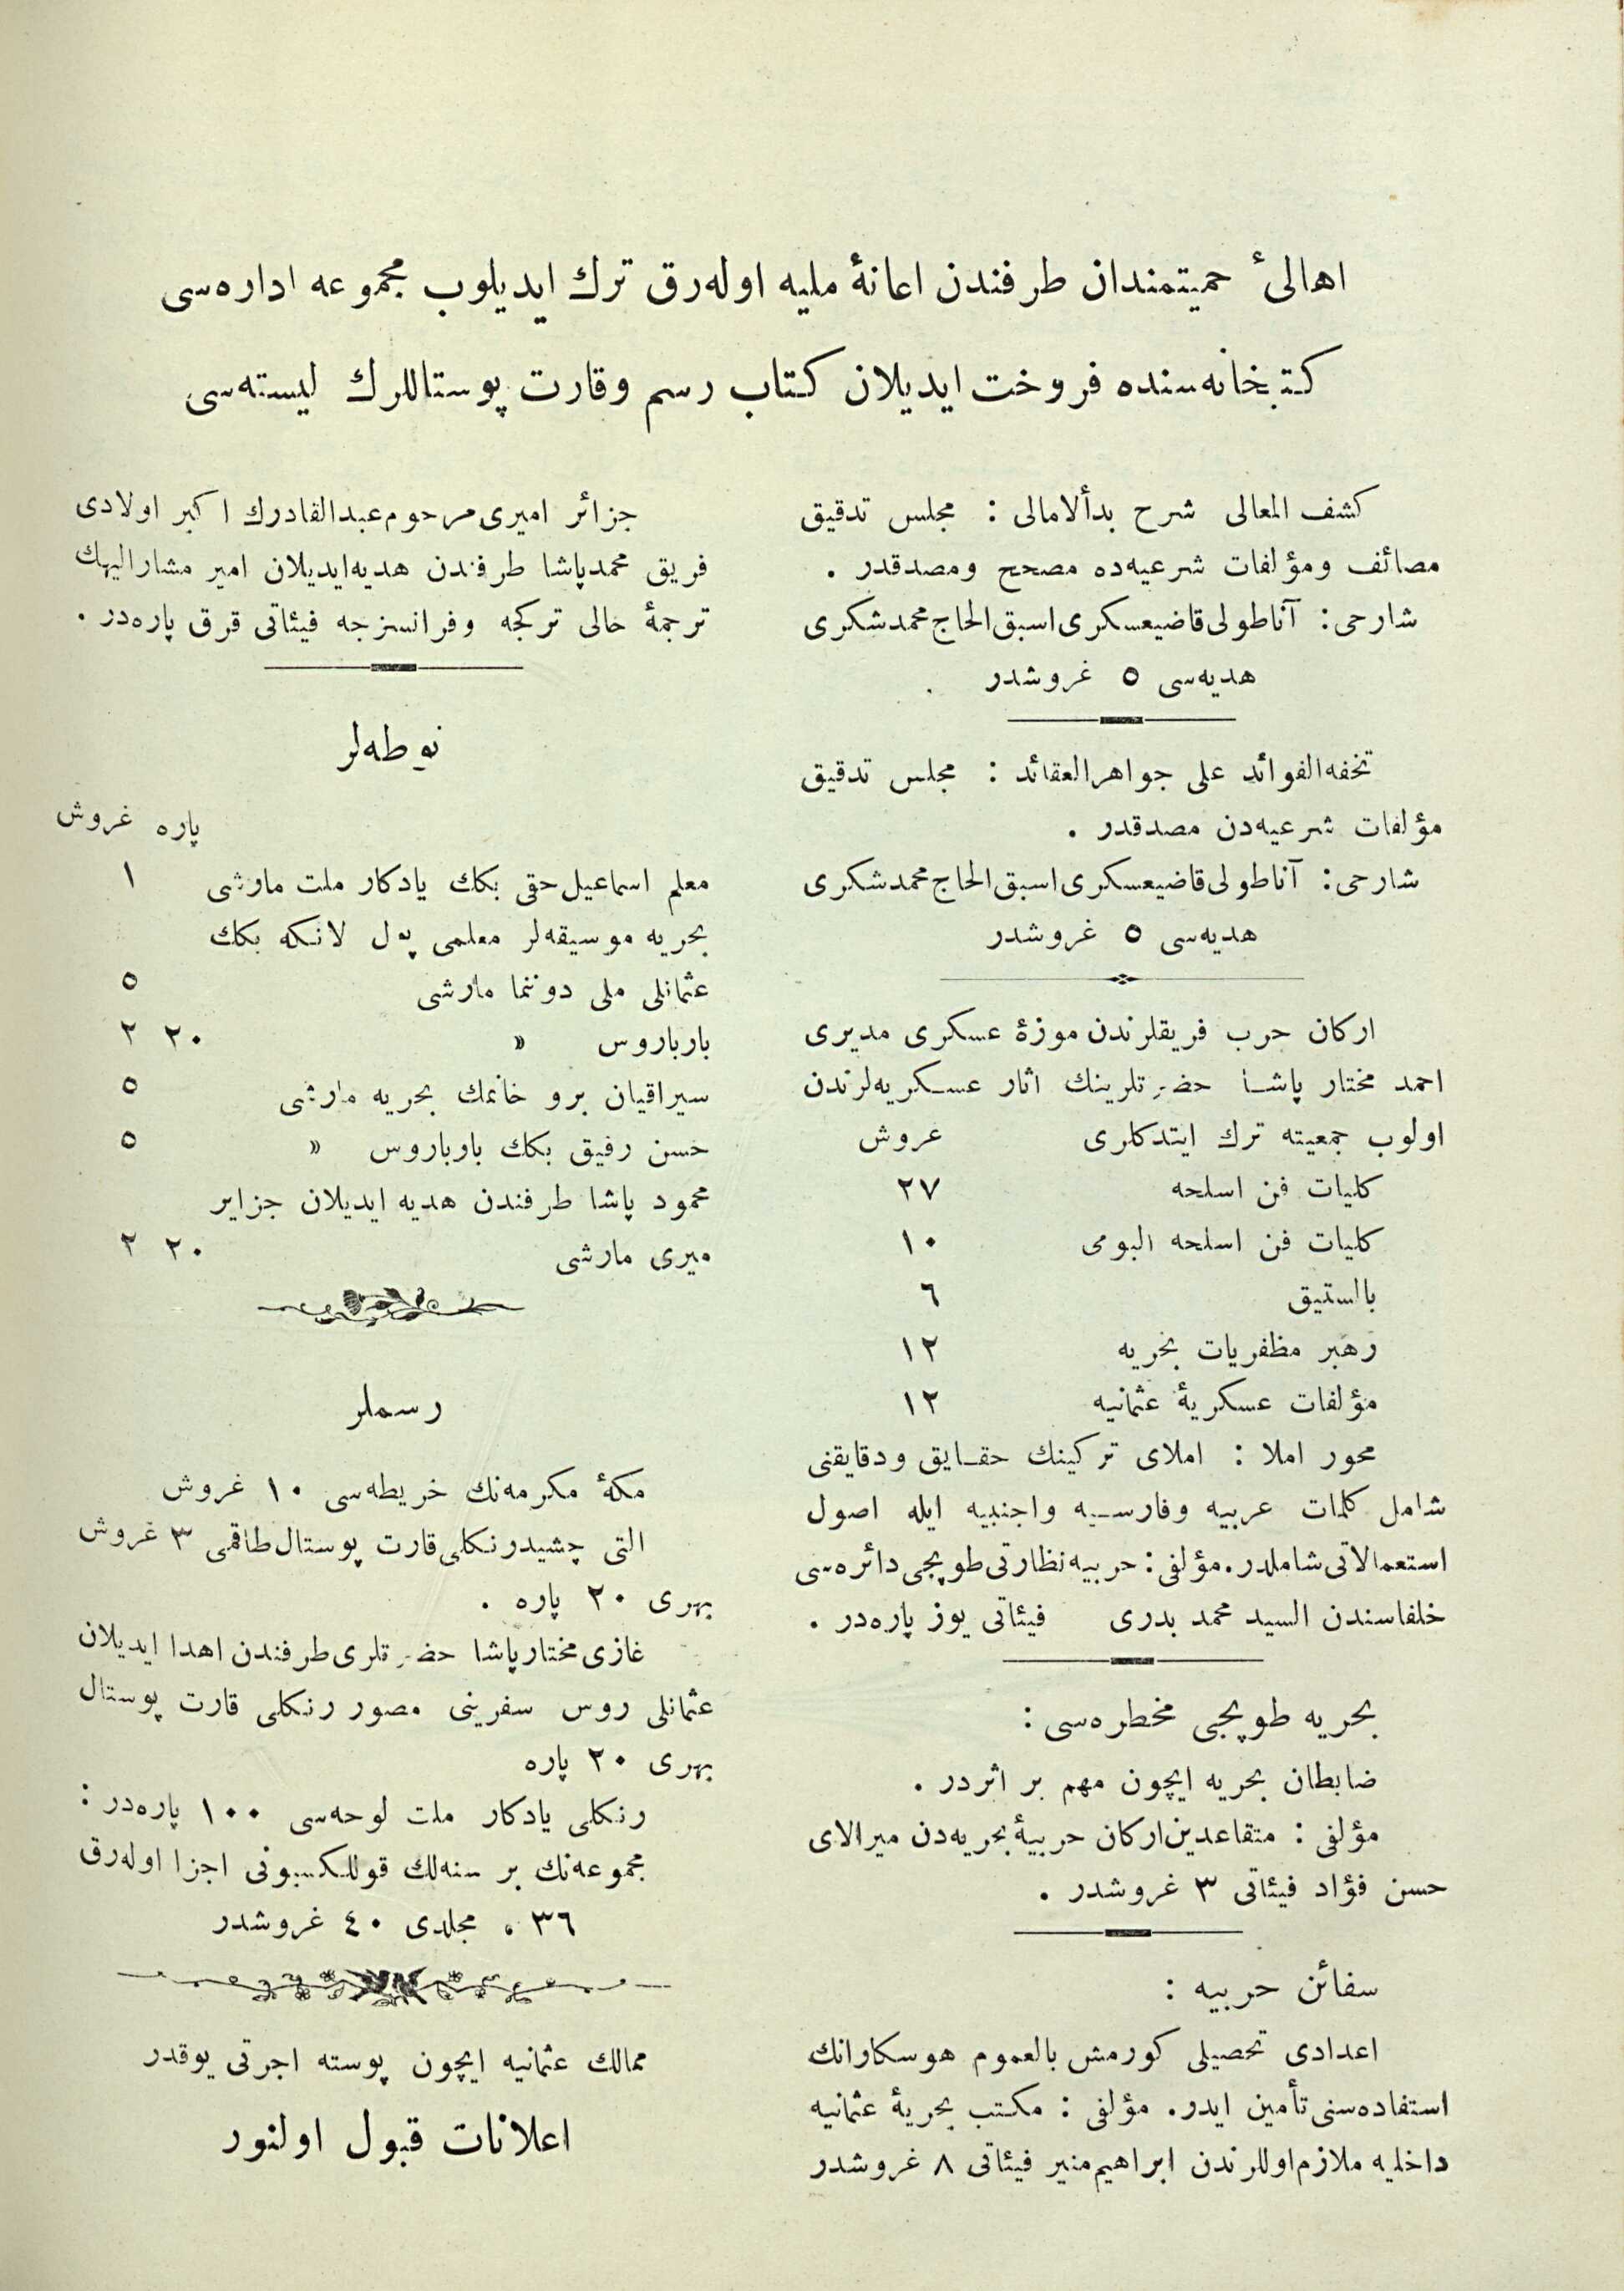 اهالیٔ حمیتمندان طرفندن اعانۀ ملیه اوله‌رق ترك ایدیلوب مجموعه اداره‌سی
كتبخانه‌سنده فروخت ایدیلان كتاب رسم وقارت پوستاللرك لیسته‌سی
كشف المعالی شرح بدألامالی : مجلس تدقیق
مصائف ومؤلفات شرعیه‌ده مصحح ومصدقدر .
شارحی : آناطولی قاضیعسكری اسبق الحاج محمد شكری
هدیه‌سی ٥ غروشدر
تحفه الفوائد علی جواهر العقائد : مجلس تدقیق
مؤلفات شرعیه‌دن مصدقدر .
شارحی : آناطولی قاضیعسكری اسبق الحاج محمد شكری
هدیه‌سی ٥ غروشدر
اركان حرب فریقلرندن موزۀ عسكری مدیری
احمد مختار پاشا حضرتلرینك اثار عسكریه‌لرندن
اولوب جمعیته ترك ایتدكلری عروش
كلیات فن اسلحه ٢٧
كلیات فن اسلحه البومی ١٠
بالستیق ٦
رهبر مظفریات بحریه ١٢
مؤلفات عسكریۀ عثمانیه ١٢
محور املا : املای تركینك حقایق ودقایقنی
شامل كلمات عربیه وفارسیه واجنبیه ایله اصول
استعمالاتی شاملدر . مؤلفی : حربیه نظارتی طوپجی دائره‌سی
خلفاسندن السید محمد بدری فیئاتی یوز پاره‌در .
بحریه طوپجی مخطره‌سی :
ضابطان بحریه ایچون مهم بر اثردر .
مؤلفی : متقاعدین اركان حربیۀ بحریه‌دن میرالای
حسن فؤاد فیئاتی ٣ غروشدر .
سفائن حربیه :
اعدادی تحصیلی كورمش بالعموم هوسكارانك
استفاده‌سنی تأمین ایدر . مؤلفی : مكتب بحریۀ عثمانیه
داخلیه ملازم اوللرندن ابراهیم منیر فیئاتی ٨ غروشدر
جزائر امیری مرحوم عبدالقادرك اكبر اولادی
فریق محمد پاشا طرفندن هدیه ایدیلان امیر مشار الیهك
ترجمۀ حالی تركجه وفرانسزجه فیئاتی قرق پاره‌در .
نوطه‌لر
پاره غروش
معلم اسماعیل حقی بكك یادكار ملت مارشی ١
بحریه موسیقه‌لر معلمی پول لانكه بكك
عثمانلی ملی دوننما مارشی ٥
بارباروس » ٢٠ ٢
سیراقیان برو خانمك بحریه مارشی ٥
حسن رفیق بكك باوباروس » ٥
محمود پاشا طرفندن هدیه ایدیلان جزایر
میری مارشی ٢٠ ٢
رسملر
مكۀ مكرمه‌نك خریطه‌سی ١٠ غروش
التی چشید رنكلی قارت پوستال طاقمی ٣ غروش
بهری ٢٠ پاره .
غازی مختار پاشا حضرتلری طرفندن اهدا ایدیلان
عثمانلی روس سفرینی مصور رنكلی قارت پوستال
بهری ٢٠ پاره
رنكلی یادكار ملت لوحه‌سی ١٠٠ پاره‌در :
مجموعه‌نك بر سنه‌لك قوللكسیونی اجزا اوله‌رق
٣٦ ، مجلدی ٤٠ غروشدر
ممالك عثمانیه ایچون پوسته اجرتی یوقدر
اعلانات قبول اولنور